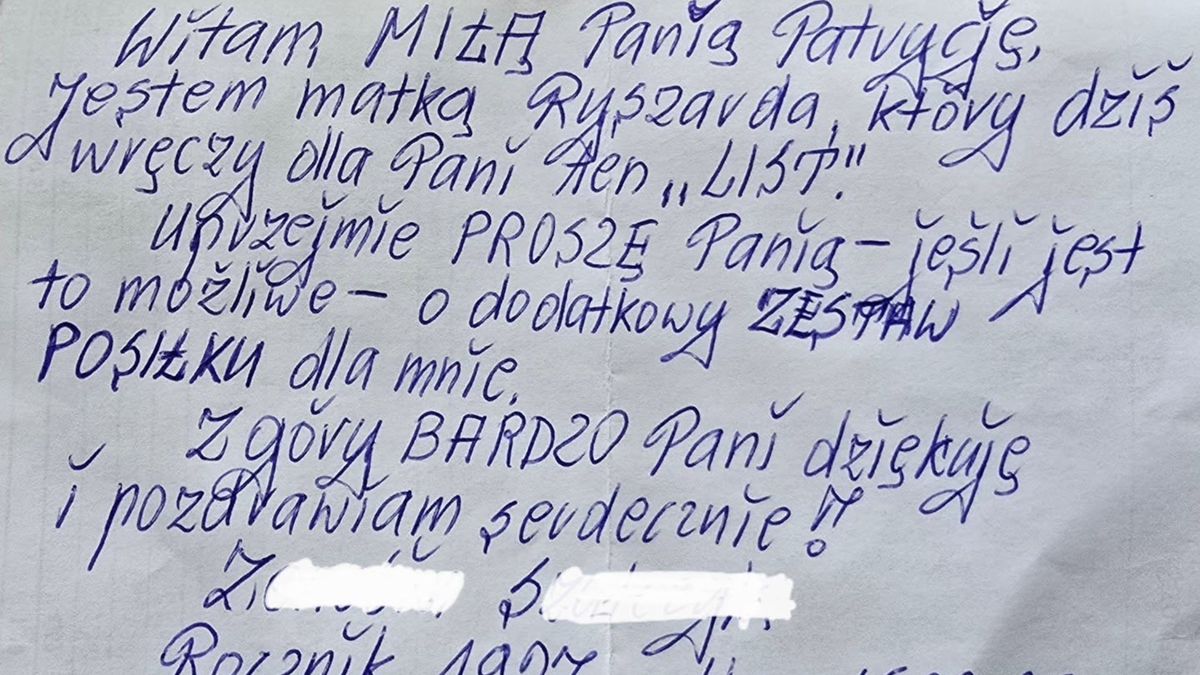 Witam MIŁĄ Panią Patrycję.
Jestem matką Ryszarda, który dziś
wręczy dla Pani ten „LIST."
Uprzejmie PROSZĘ Panią – jeśli jest
to możliwe – o dodatkowy ZESTAW
POSIŁKU dla mnie.
Z góry BARDZO Pani dziękuję
i pozdrawiam serdecznie!
Rocznik